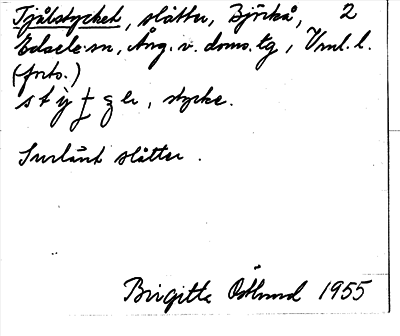 Tjålstycket, slåtter, Björkå, 2
Edsele sn, Ång. v. doms. tg, Vml. l.
(forts.)
, stycke.
Surlänt slåtter.
Birgitta Östlund 1955